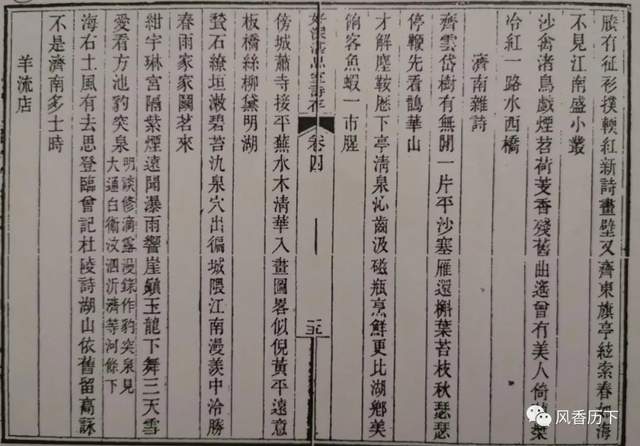 有征衫撲輭紅新詩畫壁又齊東旗亭絃索春如海
不見江南盛小叢
沙禽渚鳥戲煙苕荷芰香殘舊曲遙曾有美人倚
冶紅一路水西橋
濟南雜詩
齊雲岱樹有無閒一片平沙塞雁還槲葉苔枝秋瑟瑟
停鞭先看鵲華山
才解塵鞍厯下亭清泉沁齒汲磁瓶烹鮮更比湖鄉美
餉客魚蝦一市腥
好深湛思室詩存 卷四
傍城蕭寺接平蕪水木清華入畫圖畧似倪黃平遠意
板橋絲柳黛明湖
石繚垣漱碧苔氿泉穴出徧城隈江南漫羨中泠勝
春雨家家鬬茗來
紺宇琳宮隔紫煙遠聞暴雨響崖巔玉龍下舞三天雪
愛看方池豹突泉 明談修滴露漫錄作豹突泉見
大通白衛汶泗沂濟等河餘下
海右土風有去思登臨曾記杜陵詩湖山依舊留高詠
不是濟南多士時
羊流店
风香历下